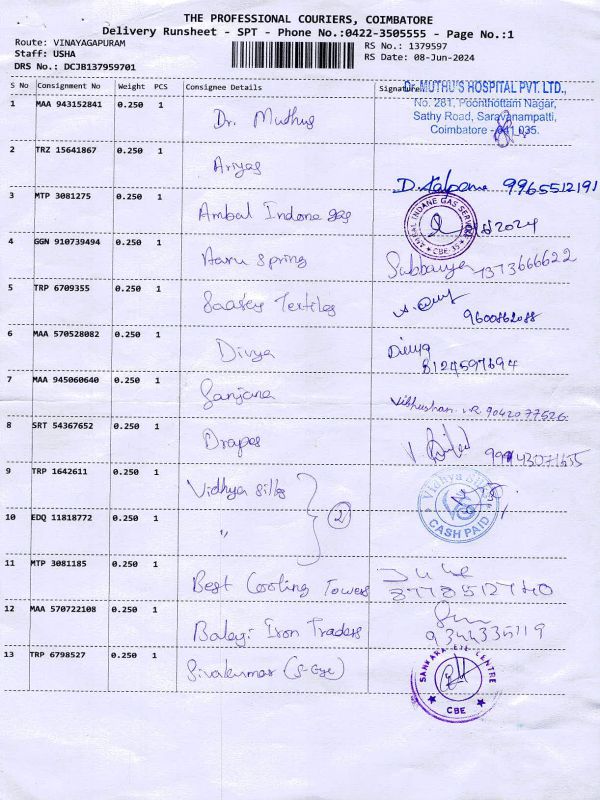 THE PROFESSIONAL COURIERS, COIMBATORE
Delivery Runsheet - SPT - Phone No.:0422-3505555 - Page No.:1
Route: VINAYAGAPURAM
Staff: USHA
DRS No.: DCJB137959701
RS No.: 1379597
RS Date: 08-Jun-2024
S No Consignment No Weight PCS Consignee Details Signature
Dr. MUTHU'S HOSPITAL PVT. LTD.,
No. 281, Poonthottam Nagar,
Sathy Road, Saravanampatti,
Coimbatore - 641 035.
1 MAA 943152841 0.250 1 Dr. Muthus
2 TRZ 15641867 0.250 1 Ariyas
D. Kalpana 9965512191
3 MTP 3081275 0.250 1 Ambal Indane gas
INDANE GAS SERVICE
CBE-35
2024
4 GGN 910739494 0.250 1 Aaru Spring
7373666622
5 TRP 6709355 0.250 1 Saasky Textiles
9600862088
6 MAA 570528082 0.250 1 Divya
Divya
8124597694
7 MAA 945060640 0.250 1 Sanjana
Vibhushan 9042077526
8 SRT 54367652 0.250 1 Drapes
9 TRP 1642611 0.250 1 Vidhya Silks
Vidhya
CASH PAID
2
10 EDQ 11818772 0.250 1 "
11 MTP 3081185 0.250 1 Best Cooling Towers
12 MAA 570722108 0.250 1 Balaji Iron Traders
9344335119
13 TRP 6798527 0.250 1 Sivakumar (S-Eye)
SANKARA EYE CENTRE
CBE